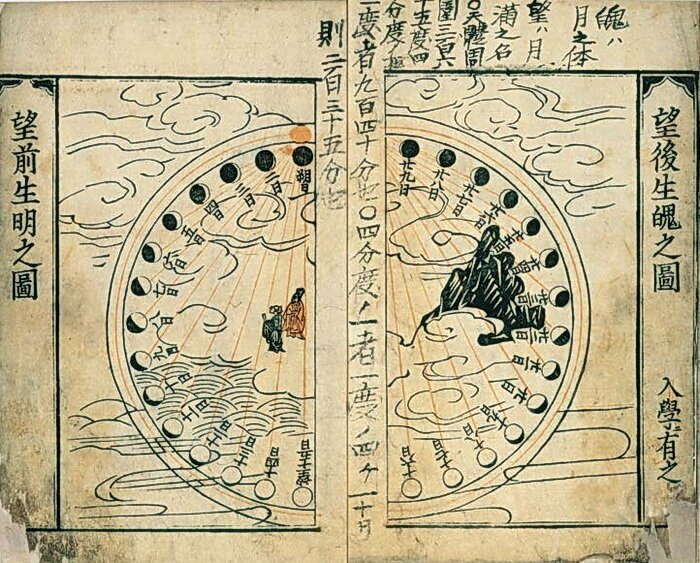 魄ハ
月之体
望ハ月
満之名
○天體周
圍三百六
十五度四
分度ノ
一度者九百四十分也○四分度ノ一者一度ノ四ケ一
十月
則二百三十五分也
望後生魄之圖
入學有之
廿九日
廿八日
廿七日
廿六日
廿五日
廿四日
廿三日
廿二日
廿一日
廿日
十九日
十八日
十七日
十六日
望前生明之圖
朔一日
二日
三日
四日
五日
六日
七日
八日
九日
十日
十一日
十二日
十三日
十四日
望十五日